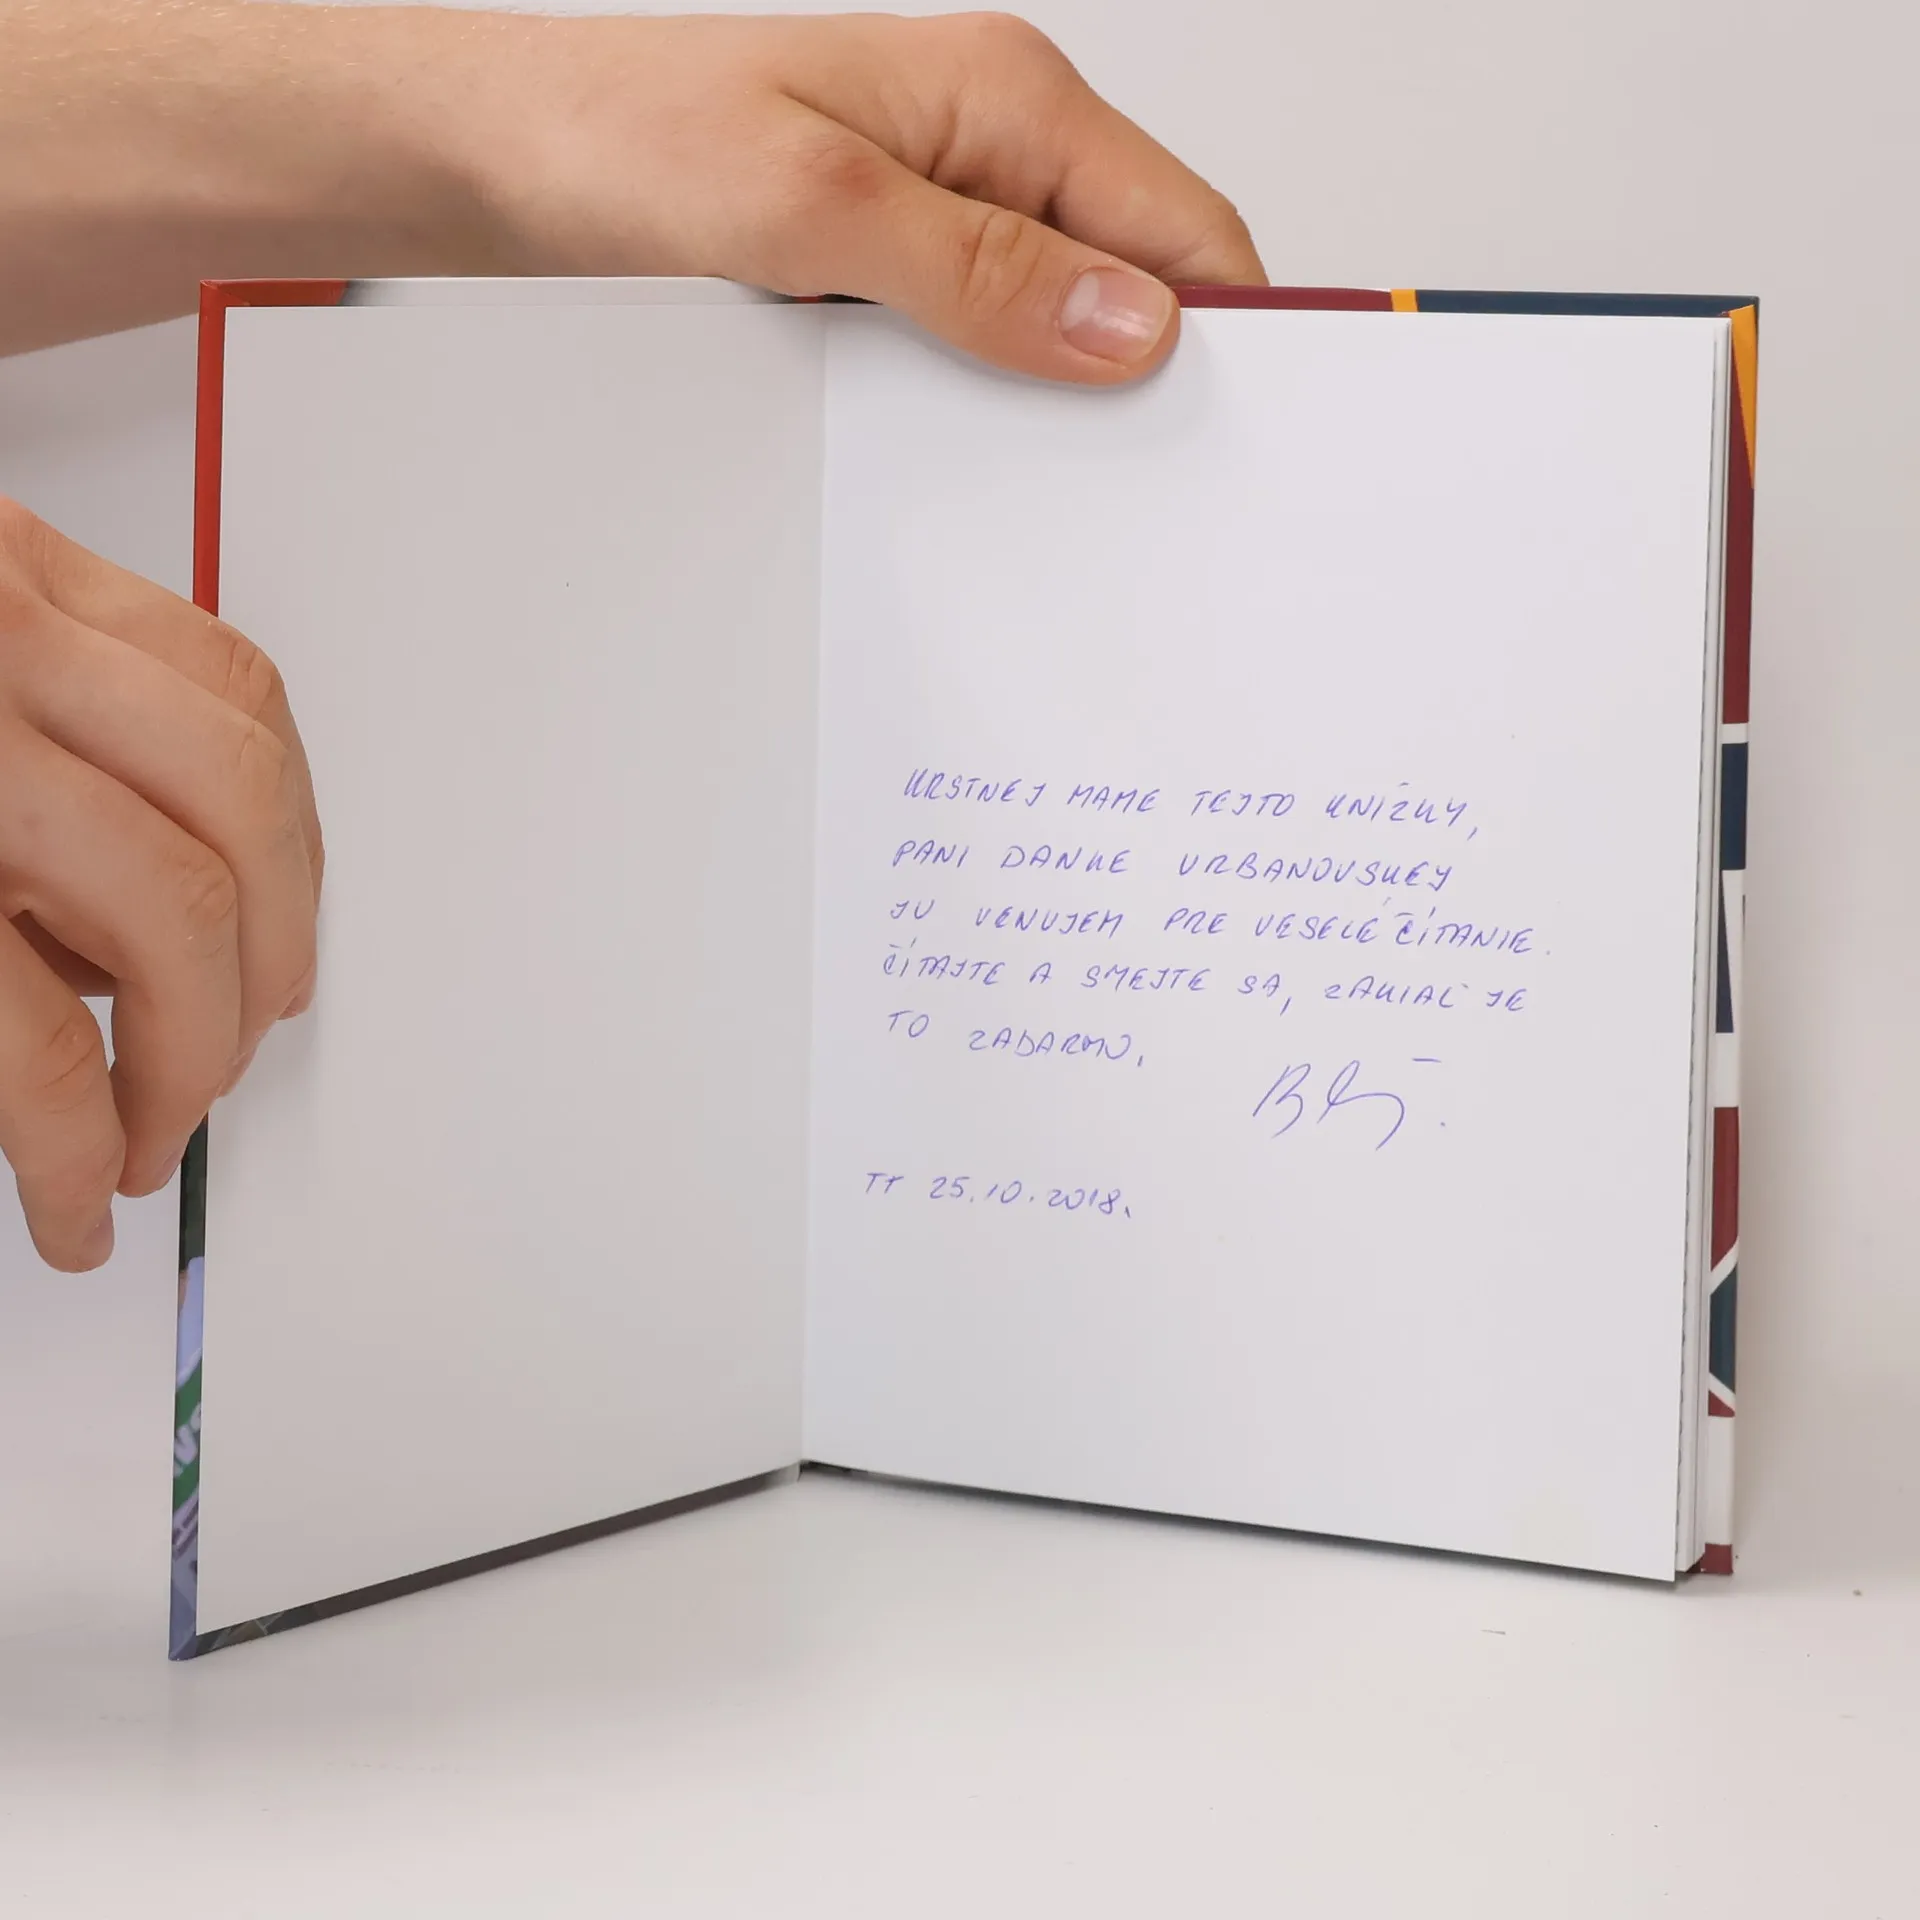 KRSTNEJ MAME TEJTO KNIŽKY,
PANI DANKE URBANOVSKEJ
JU VENUJEM PRE VESELÉ ČÍTANIE.
ČÍTAJTE A SMEJTE SA, ZAKIAĽ JE
TO ZADARMO.
TT 25.10.2018.